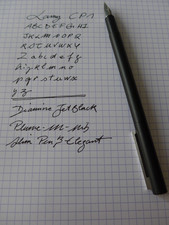 Lamy CPM
ABCDEFGHI
JKLMNOPQ
RSTUVWXY
Z abcdefg
hijklmno
pqrstuvwx
yz
Diamine Jet Black
Plume-M-nib
Slim Pen Elegant